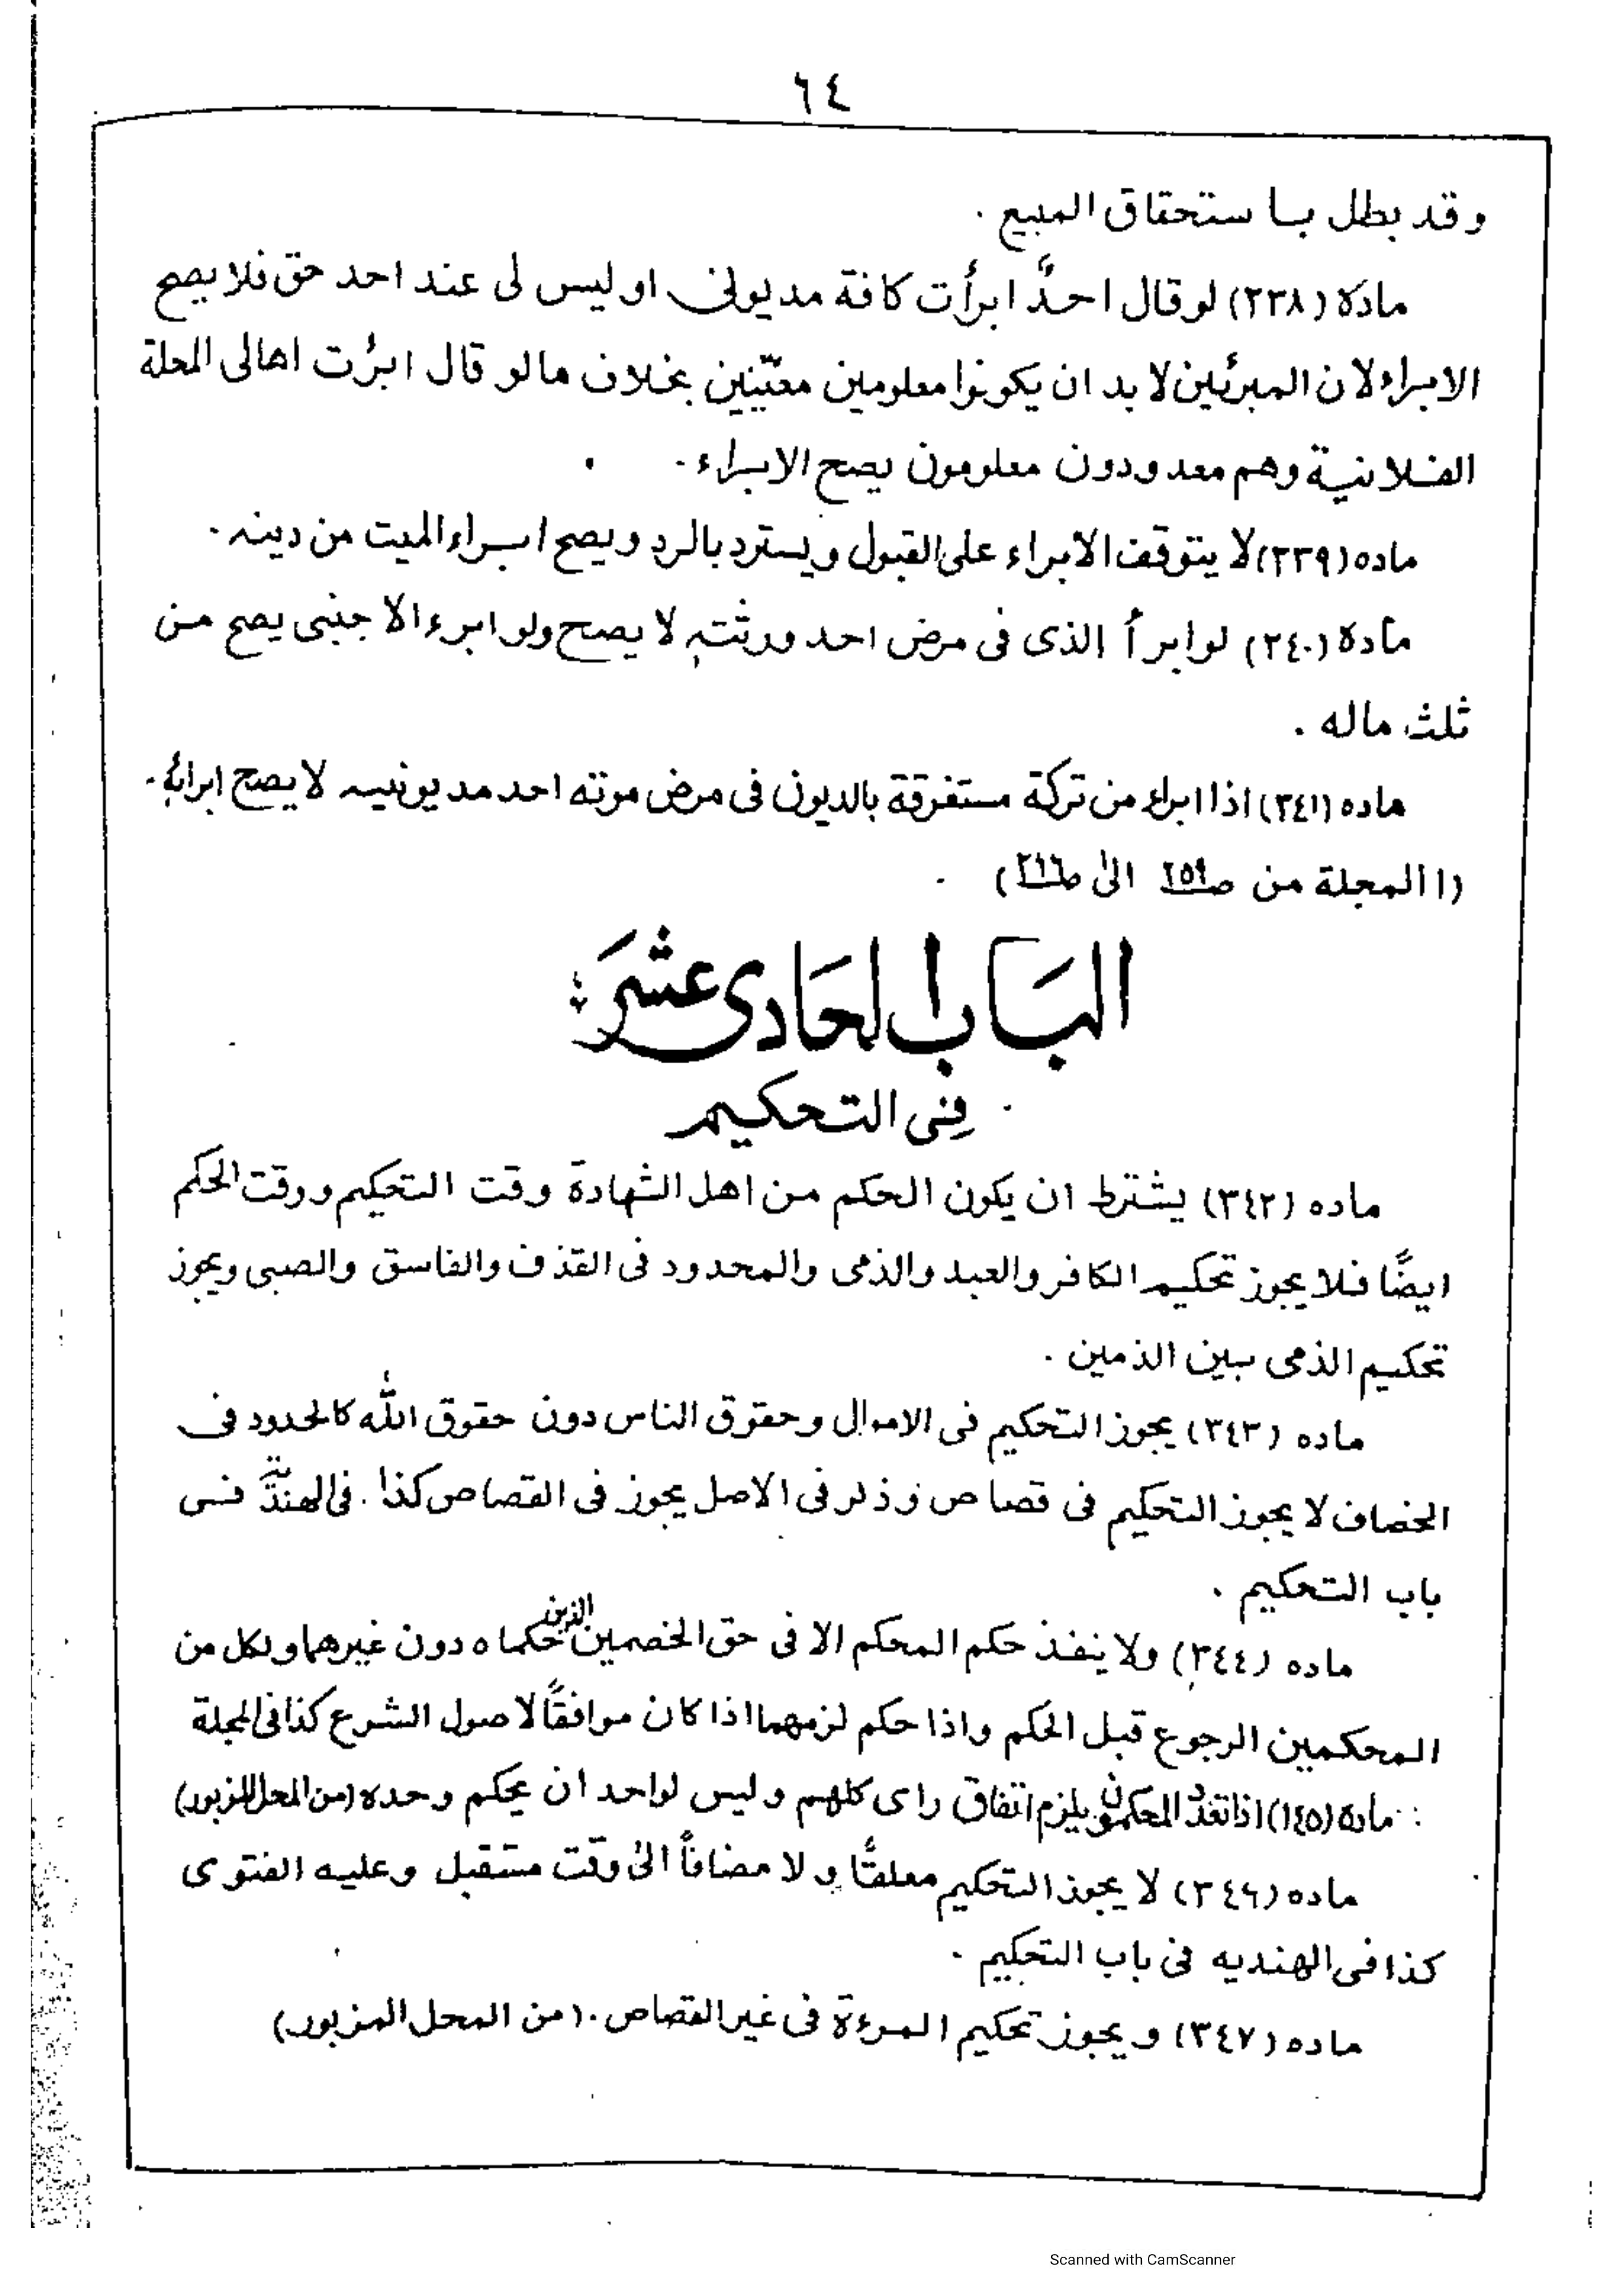 ٦٤
وقد بطل باستحقاق المبيع .
مادة (٣٣٨) لو قال احدٌ ابرأت كافة مديوني او ليس لى عند احد حق فلا يصح
الابراء لان المبرئين لا بد ان يكونوا معلومين معيّنين بخلاف مالو قال ابرُت اهالى المحلة
الفلانية وهم معدودون معلومون يصح الابراء .
ماده (٣٣٩) لا يتوقف الابراء على القبول ويسترد بالرد ويصح ابراء الميت من دينه .
مادة (٣٤٠) لو ابرأ الذى فى مرض احد ورثته لا يصح ولو ابرء الاجنبى يصح من
ثلث ماله .
ماده (٣٤١) اذا ابراء من تركة مستغرقة بالديون فى مرض موته احد مديونيه لا يصح ابرائه .
(المجلة من ص٢٥٩ الىٰ ص٢٦٦) .
الباب الحادى عشر
فى التحكيم
ماده (٣٤٢) يشترط ان يكون الحكم من اهل الشهادة وقت التحكيم ووقت الحكم
ايضًا فلا يجوز تحكيم الكافر والعبد والذمى والمحدود فى القذف والفاسق والصبى ويجوز
تحكيم الذمى بين الذمين .
ماده (٣٤٣) يجوز التحكيم فى الاموال وحقوق الناس دون حقوق الله كالحدود فى
الخصاف لا يجوز التحكيم فى قصاص وذكر فى الاصل يجوز فى القصاص كذا . فى الهندية فى
باب التحكيم .
ماده (٣٤٤) ولا ينفذ حكم المحكم الا فى حق الخصمين الذين حكماه دون غيرهما ولكل من
المحكمين الرجوع قبل الحكم واذا حكم لزمهما اذا كان موافقًا لاصول الشرع كذا فى المجلة
مادة (١٤٥) اذا تعدد المحكمون يلزم اتفاق راى كلهم وليس لواحد ان يحكم وحده (من المحل المزبور)
ماده (٣٤٦) لا يجوز التحكيم معلقًا ولا مضافاً الىٰ وقت مستقبل وعليه الفتوى
كذا فى الهنديه فى باب التحكيم .
ماده (٣٤٧) ويجوز تحكيم المرءة فى غير القصاص . (من المحل المزبور)
Scanned with CamScanner